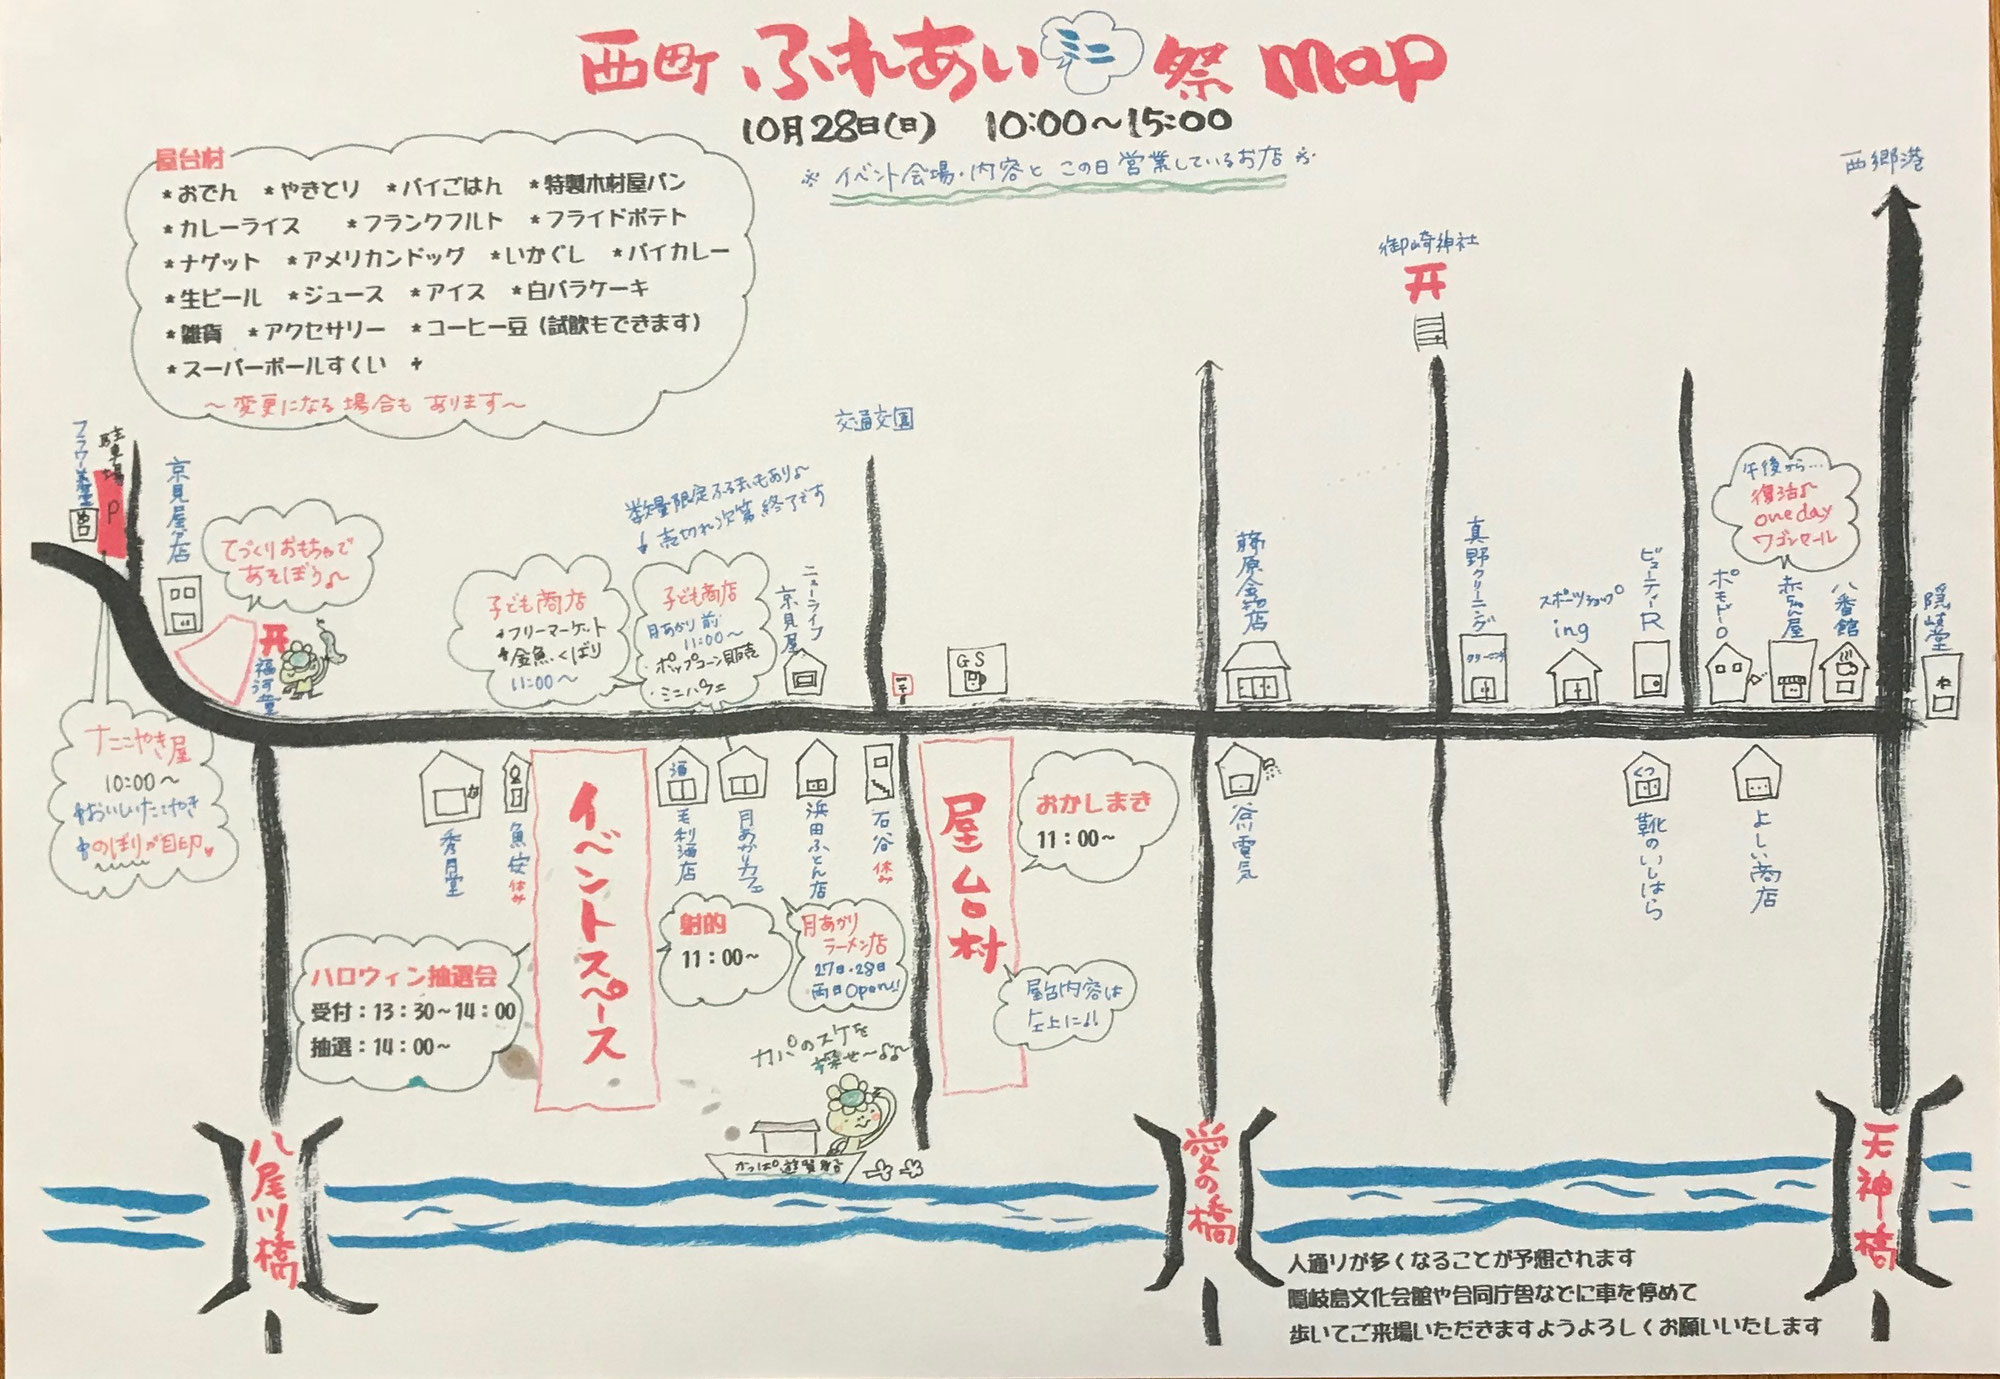 西町 ふれあい ミニ 祭 map
10月28日(日) 10:00～15:00
※ イベント会場・内容と この日営業しているお店 ※
屋台村
*おでん *やきとり *バイごはん *特製木村屋パン
*カレーライス *フランクフルト *フライドポテト
*ナゲット *アメリカンドッグ *いかぐし *バイカレー
*生ビール *ジュース *アイス *白バラケーキ
*雑貨 *アクセサリー *コーヒー豆（試飲もできます）
*スーパーボールすくい
～変更になる場合もあります～
西郷港
御崎神社
交通公園
駐車場
P
京見屋分店
てづくりおもちゃで
あそぼう♪
福河童
10:00～
のぼりが目印♥
子ども商店
フリーマーケット
金魚くばり
11:00～
数量限定ふるまいもあり♪
売切れ次第終了です
子ども商店
月あかり前
11:00～
・ポップコーン販売
・ミニパフェ
ニューライフ
京見屋
GS
藤原金物店
真野クリーニング
クリーニング
スポーツショップ
ing
ビューティーR
ポモドーロ
午後から…
復活♪
one day
ワゴンセール
赤ちゃん屋
八番館
隠岐堂
秀月堂
魚安 休み
イベントスペース
酒
毛利酒店
月あかりカフェ
浜田ふとん店
石谷 休み
屋台村
おかしまき
11：00～
谷川電気
くつ
靴のいしはら
よしい商店
ハロウィン抽選会
受付：13：30～14：00
抽選：14：00～
射的
11：00～
月あかり
ラーメン店
27日・28日
両日Open!!
屋台内容は
左上に!!
カパのスケを
探せ～♪♪
かっぱ遊覧船
八尾川橋
愛の橋
天神橋
人通りが多くなることが予想されます
隠岐島文化会館や合同庁舎などに車を停めて
歩いてご来場いただきますようよろしくお願いいたします